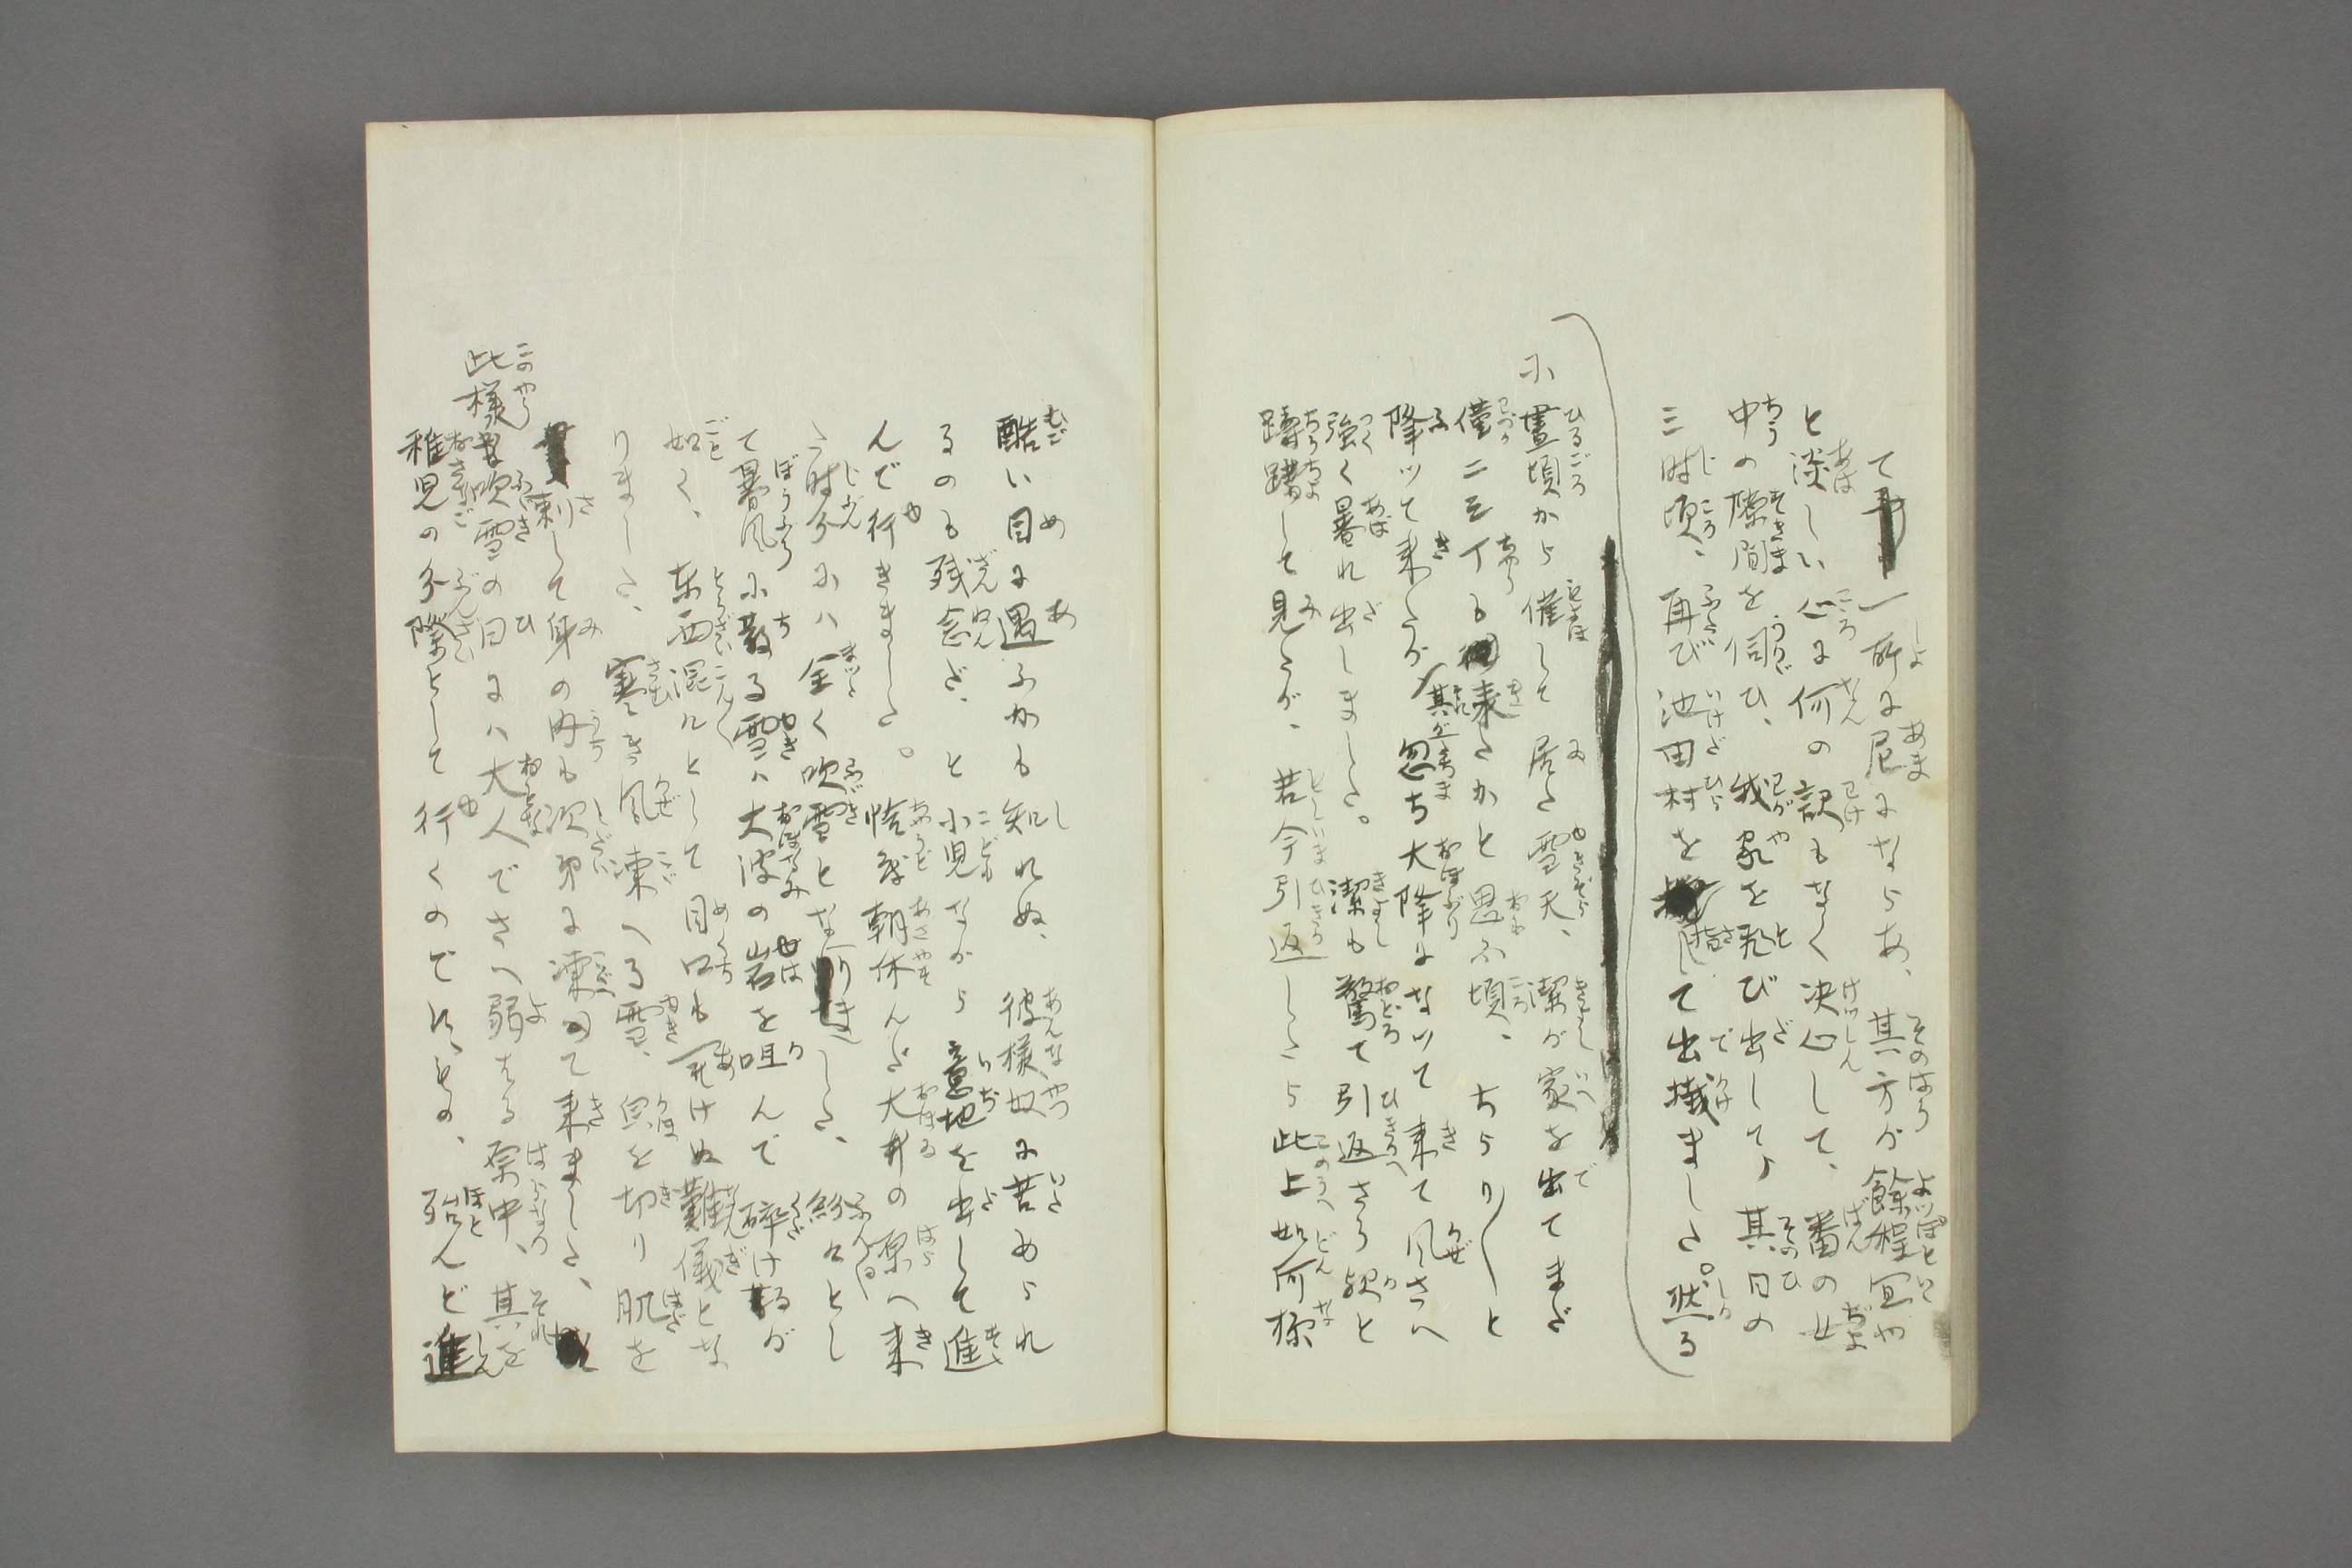 て一所に尼にならあ、其方が餘程宜や
と淡しい心に何の訳もなく决心して、一番の世
中の隙間を伺ひ、我家を飛び出して、其日の
三時頃、再び池田村を指して出掛ました。然る
に晝頃から催して居た雪天、潔が家を出てまだ
僅二三丁も来たかと思ふ頃、ちらり〳〵と
降ツて来たが、其が忽ち大降になツて来て風さへ
強く暴れ出しました。潔も驚て引返さう歟と
躊躇して見たが、若今引返したら此上如何様
酷い目に遇ふかも知れぬ、彼様奴に苦められ
るのも残念だ、と小児ながら意地を出して進
んで行きました。恰度朝休んだ大井の原へ来
た時分にハ全く吹雪となりました、紛々とし
て暴風に散る雪ハ大波の岩を咀んで砕け散るが
如く、東西混沌として目口も開けぬ難儀とな
りました、寒き風凍へる雪、魚を切り肌を
刺して身の内も次第に凍って来ました、
此様吹雪の日にハ大人でさへ弱はる原中、其を
稚児の分際として行くのですもの、殆んど進